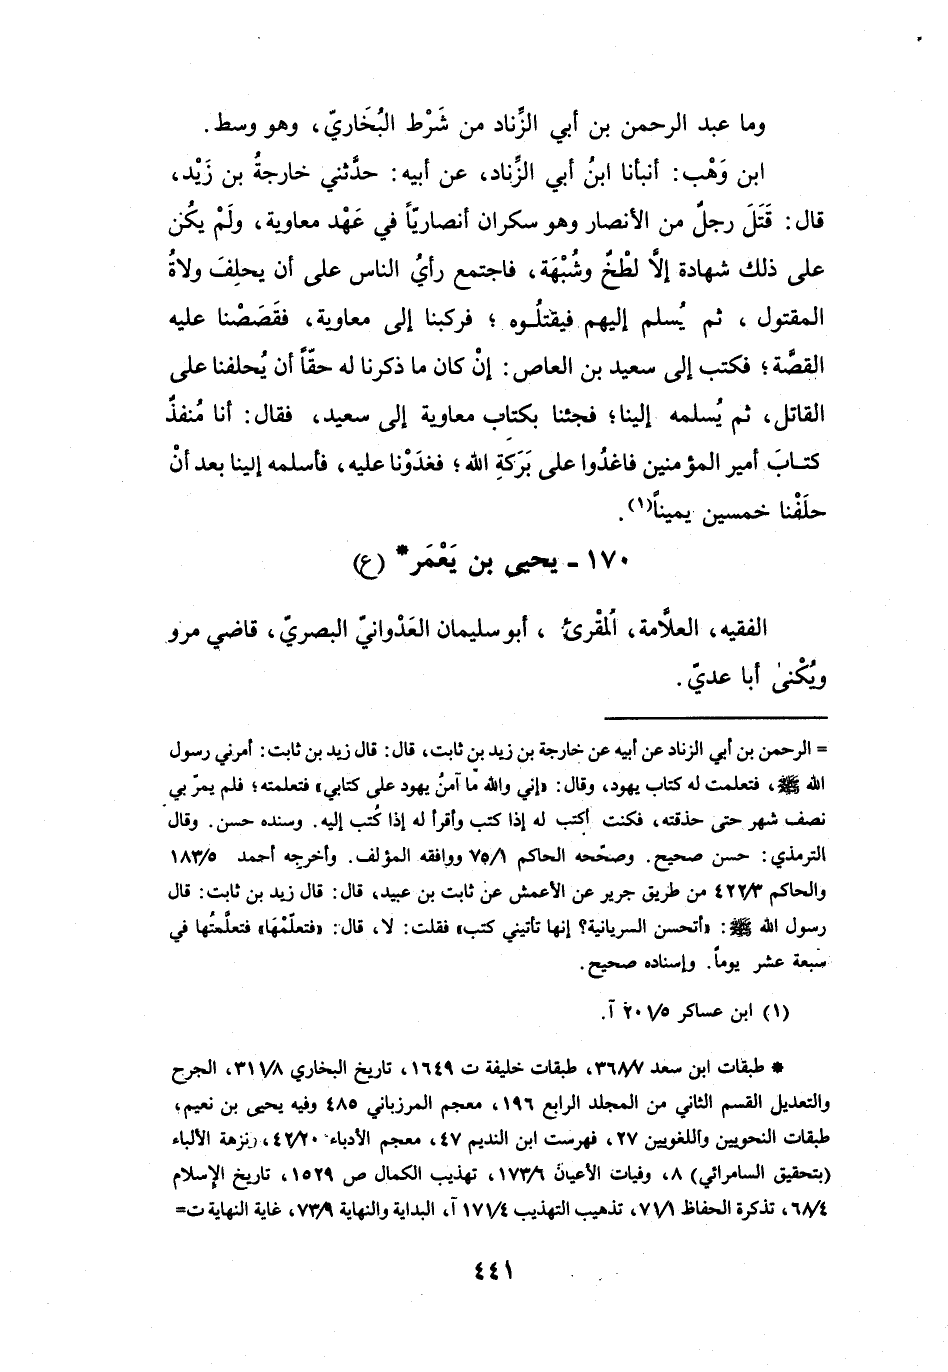 وما عبد الرحمن بن أبي الزِّناد من شَرْط البُخَاريّ، وهو وسط.
ابن وَهْب: أنبأنا ابنُ أبي الزِّناد، عن أبيه: حدَّثني خارجةُ بن زَيْد،
قال: قَتَلَ رجلٌ من الأنصار وهو سكران أنصاريّاً في عَهْد معاوية، ولَمْ يكُن
على ذلك شهادة إلَّا لطْخٌ وشُبْهَة، فاجتمع رأيُ الناس على أن يحلِفَ ولاةُ
المقتول، ثم يُسلم إليهم فيقتلُوه؛ فركبنا إلى معاوية، فقَصَصْنا عليه
القصَّة؛ فكتب إلى سعيد بن العاص: إنْ كان ما ذكرنا له حقّاً أن يُحلفنا على
القاتل، ثم يُسلمه إلينا؛ فجئنا بكتاب معاوية إلى سعيد، فقال: أنا مُنفذٌ
كتابَ أمير المؤمنين فاغدُوا على بَرَكةِ الله؛ فغدَوْنا عليه، فأسلمه إلينا بعد أنْ
حلَفْنا خمسين يميناً(١).
١٧٠ - يحيى بن يَعْمَر* (ع)
الفقيه، العلَّامة، اُلمقْرئُ، أبو سليمان العَدْوانيّ البصريّ، قاضي مرو
ويُكْنىٰ أبا عديّ.
= الرحمن بن أبي الزناد عن أبيه عن خارجة بن زيد بن ثابت، قال: قال زيد بن ثابت: أمرني رسول
الله ﷺ، فتعلمت له كتاب يهود، وقال: «إني والله ما آمنُ يهود على كتابي» فتعلمته؛ فلم يمرّ بي
نصف شهر حتى حذقته، فكنت أكتب له إذا كتب وأقرأ له إذا كُتب إليه. وسنده حسن. وقال
الترمذي: حسن صحيح. وصحّحه الحاكم ٧٥/١ ووافقه المؤلف. وأخرجه أحمد ١٨٣/٥
والحاكم ٤٢٢/٣ من طريق جرير عن الأعمش عن ثابت بن عبيد، قال: قال زيد بن ثابت: قال
رسول الله ﷺ: «أتحسن السريانية؟ إنها تأتيني كتب» فقلت: لا، قال: «فتعلّمْهَا» فتعلَّمتُها في
سبعة عشر يوماً. وإسناده صحيح.
(١) ابن عساكر ٢٠١/٥ آ.
* طبقات ابن سعد ٣٦٨/٧، طبقات خليفة ت ١٦٤٩، تاريخ البخاري ٣١١/٨، الجرح
والتعديل القسم الثاني من المجلد الرابع ١٩٦، معجم المرزباني ٤٨٥ وفيه يحيى بن نعيم،
طبقات النحويين واللغويين ٢٧، فهرست ابن النديم ٤٧، معجم الأدباء ٤٢/٢٠، نزهة الألباء
(بتحقيق السامرائي) ٨، وفيات الأعيان ١٧٣/٦، تهذيب الكمال ص ١٥٢٩، تاريخ الإسلام
٦٨/٤، تذكرة الحفاظ ٧١/١، تذهيب التهذيب ١٧١/٤ آ، البداية والنهاية ٧٣/٩، غاية النهاية ت=
٤٤١